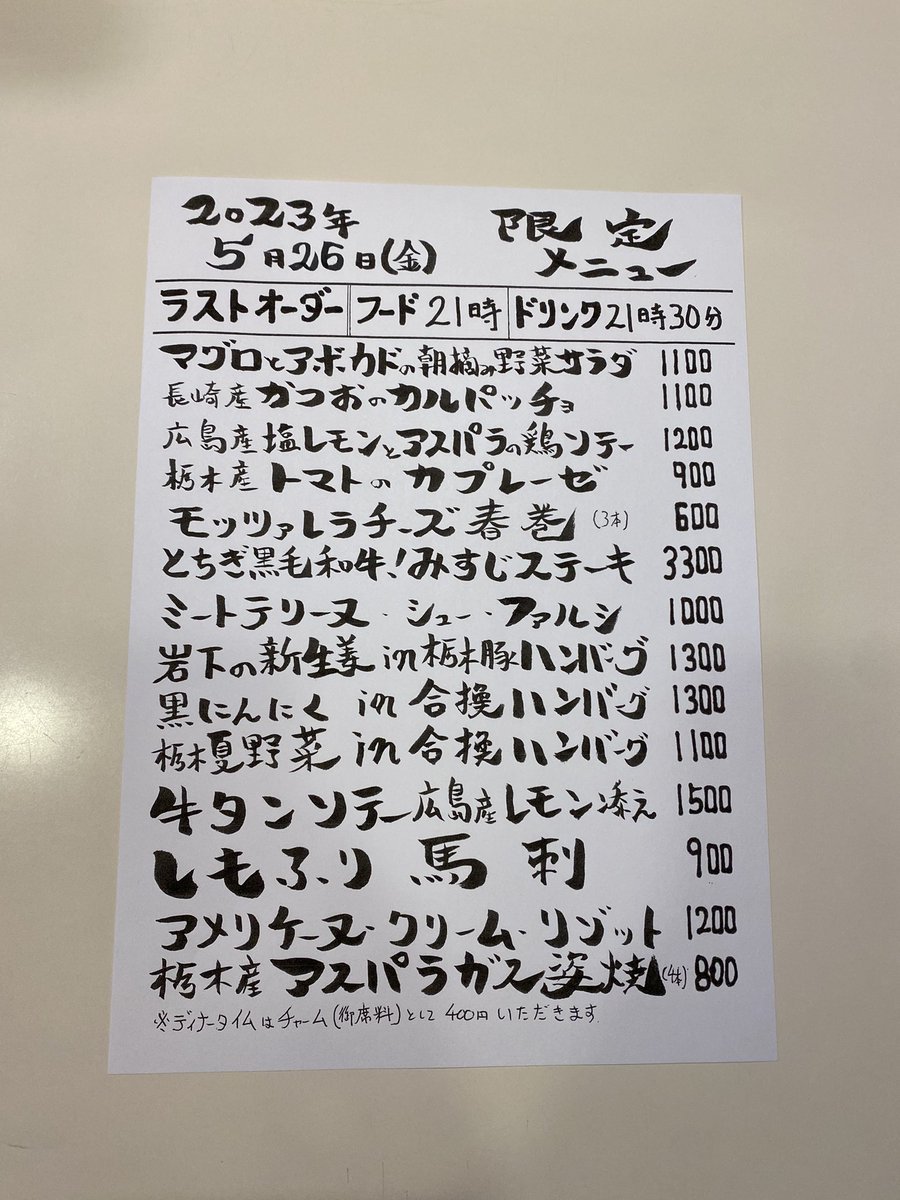 2023年
5月26日(金)
限定
メニュー
ラストオーダー フード21時 ドリンク21時30分
マグロとアボカドの朝摘み野菜サラダ 1100
長崎産かつおのカルパッチョ 1100
広島産塩レモンとアスパラの鶏ソテー 1200
栃木産トマトのカプレーゼ 900
モッツァレラチーズ春巻(3本) 600
とちぎ黒毛和牛!みすじステーキ 3300
ミートテリーヌ・シュー・ファルシ 1000
岩下の新生姜in栃木豚ハンバーグ 1300
黒にんにくin合挽ハンバーグ 1300
栃木夏野菜in合挽ハンバーグ 1100
牛タンソテー広島産レモン添え 1500
しもふり馬刺 900
アメリケーヌ・クリーム・リゾット 1200
栃木産アスパラガス姿焼(4本) 800
※ディナータイムはチャーム(御席料)として400円いただきます。